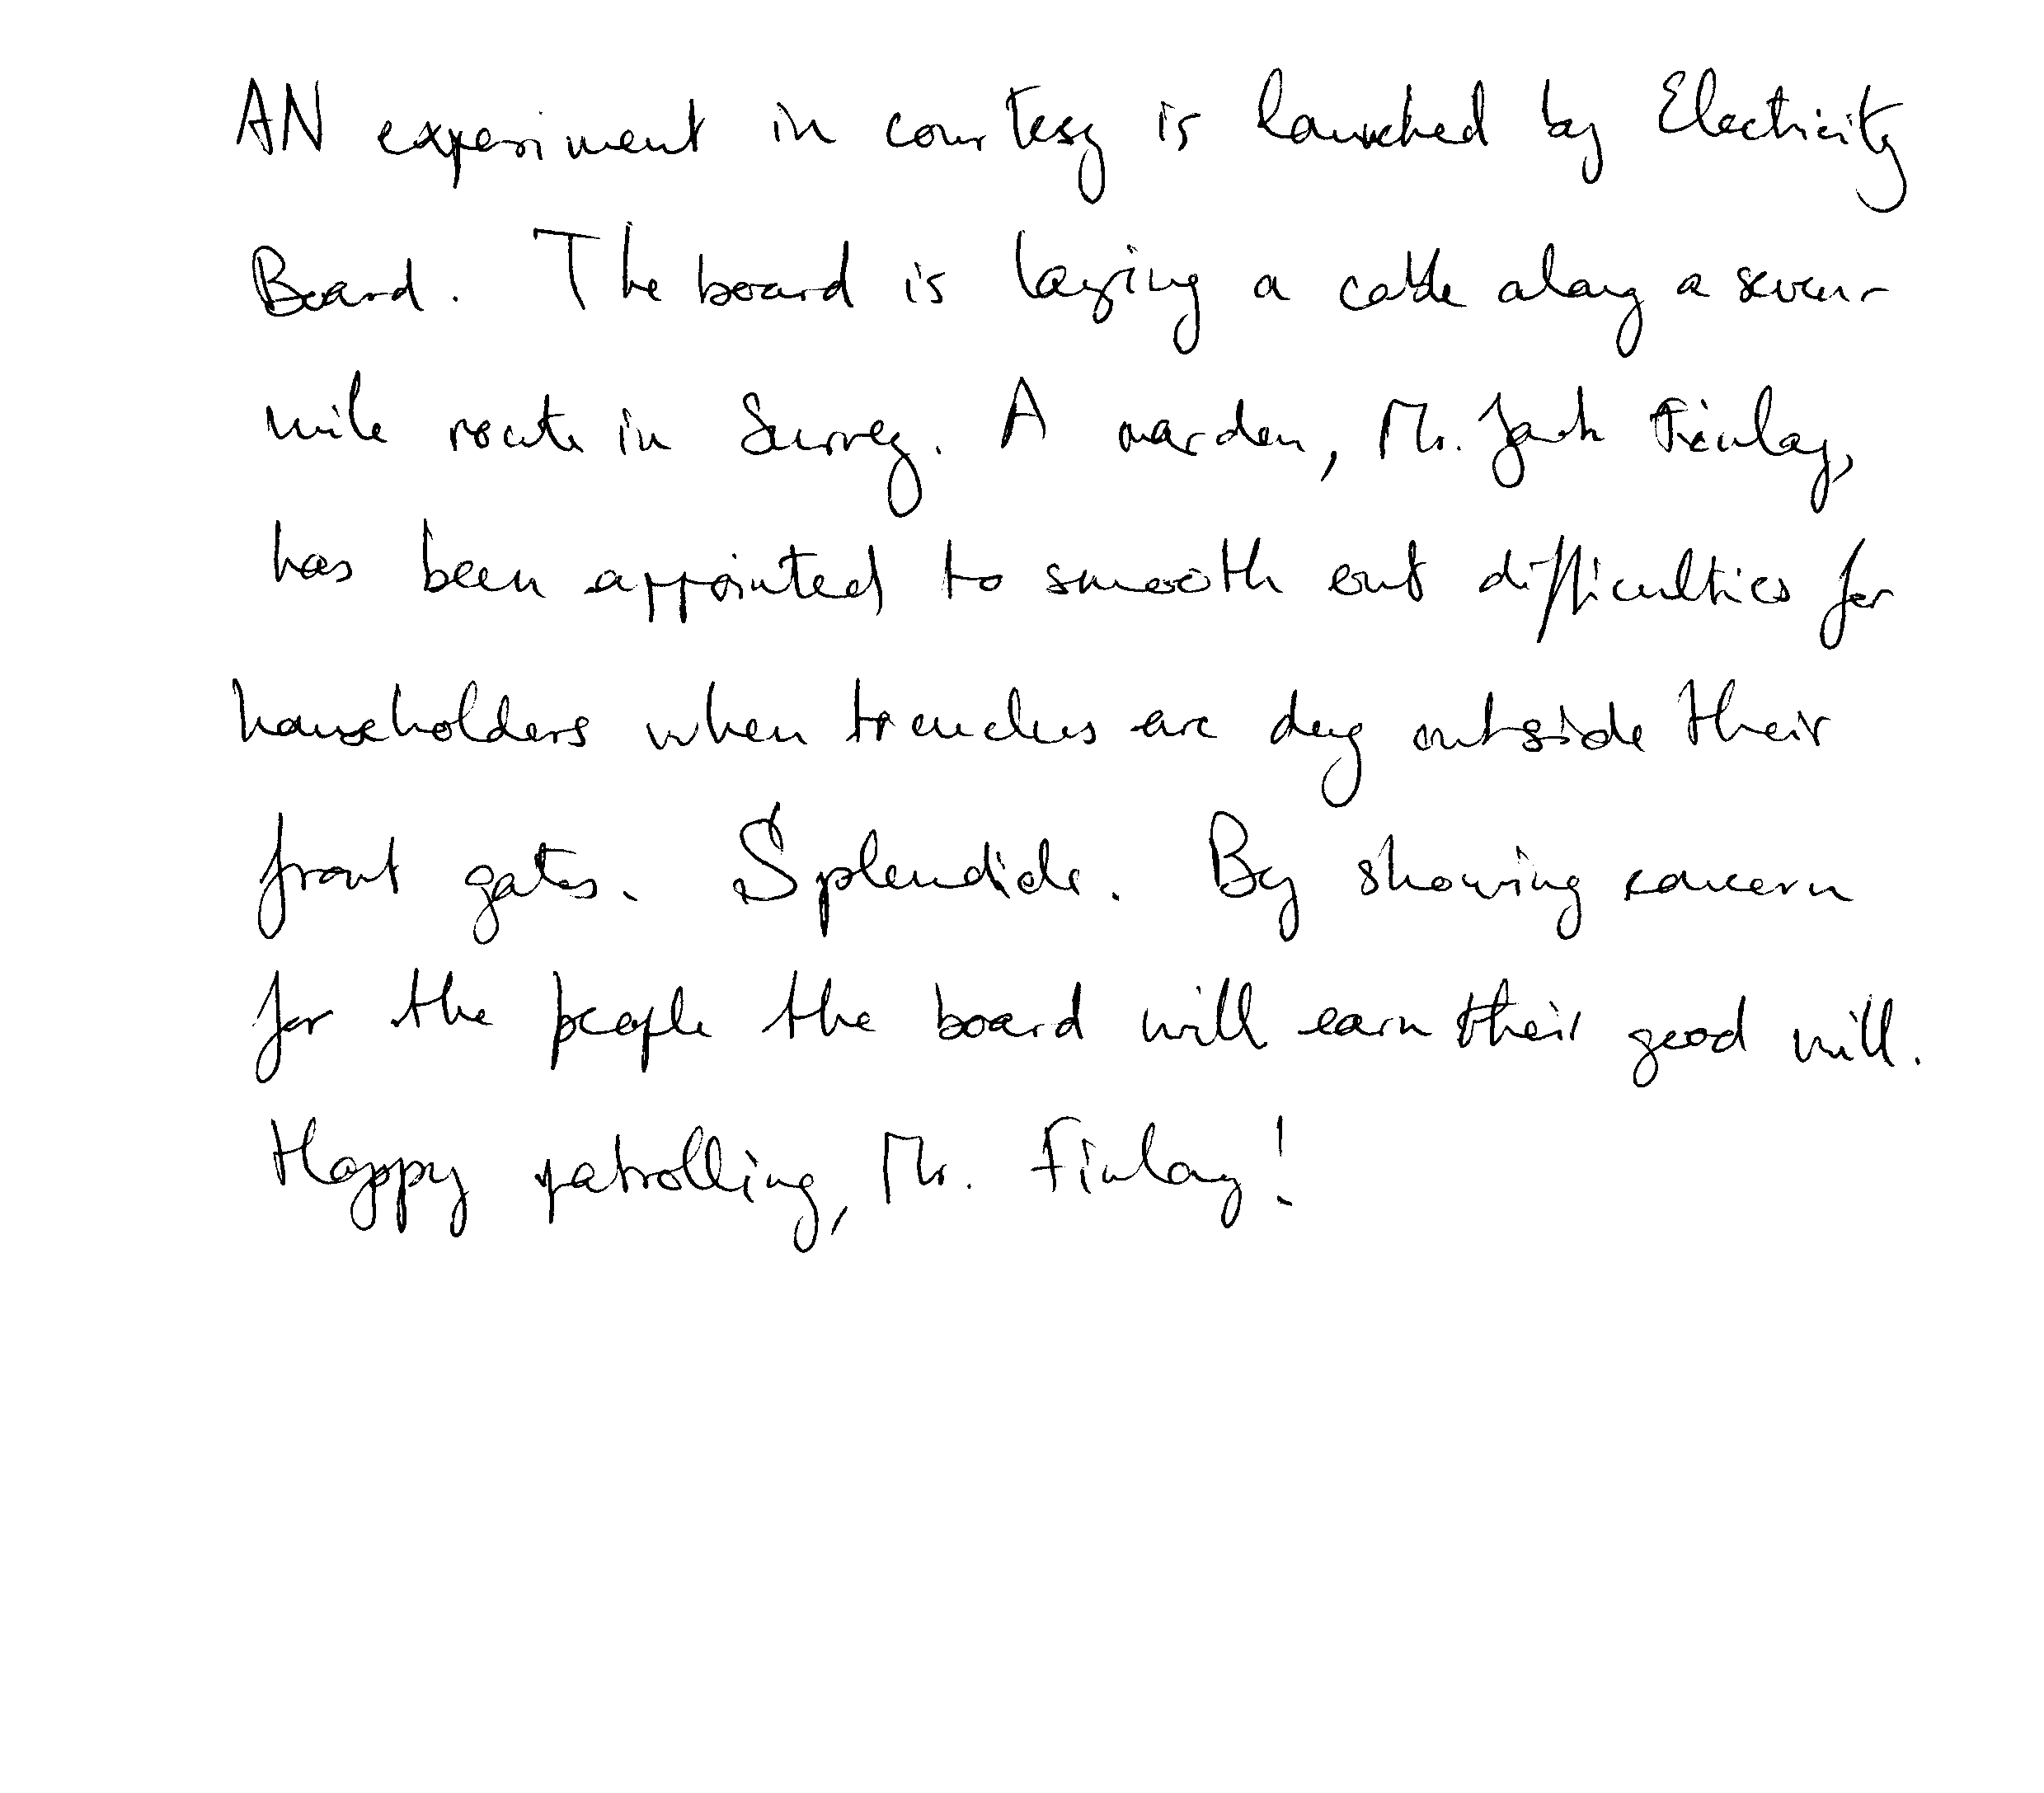 AN experiment in courtesy is launched by Electricity
Board. The board is laying a cable along a seven-
mile route in Surrey. A warden, Mr. Jack Finlay,
has been appointed to smooth out difficulties for
householders when trenches are dug outside their
front gates. Splendid. By showing concern
for the people the board will earn their good will.
Happy patrolling, Mr. Finlay!